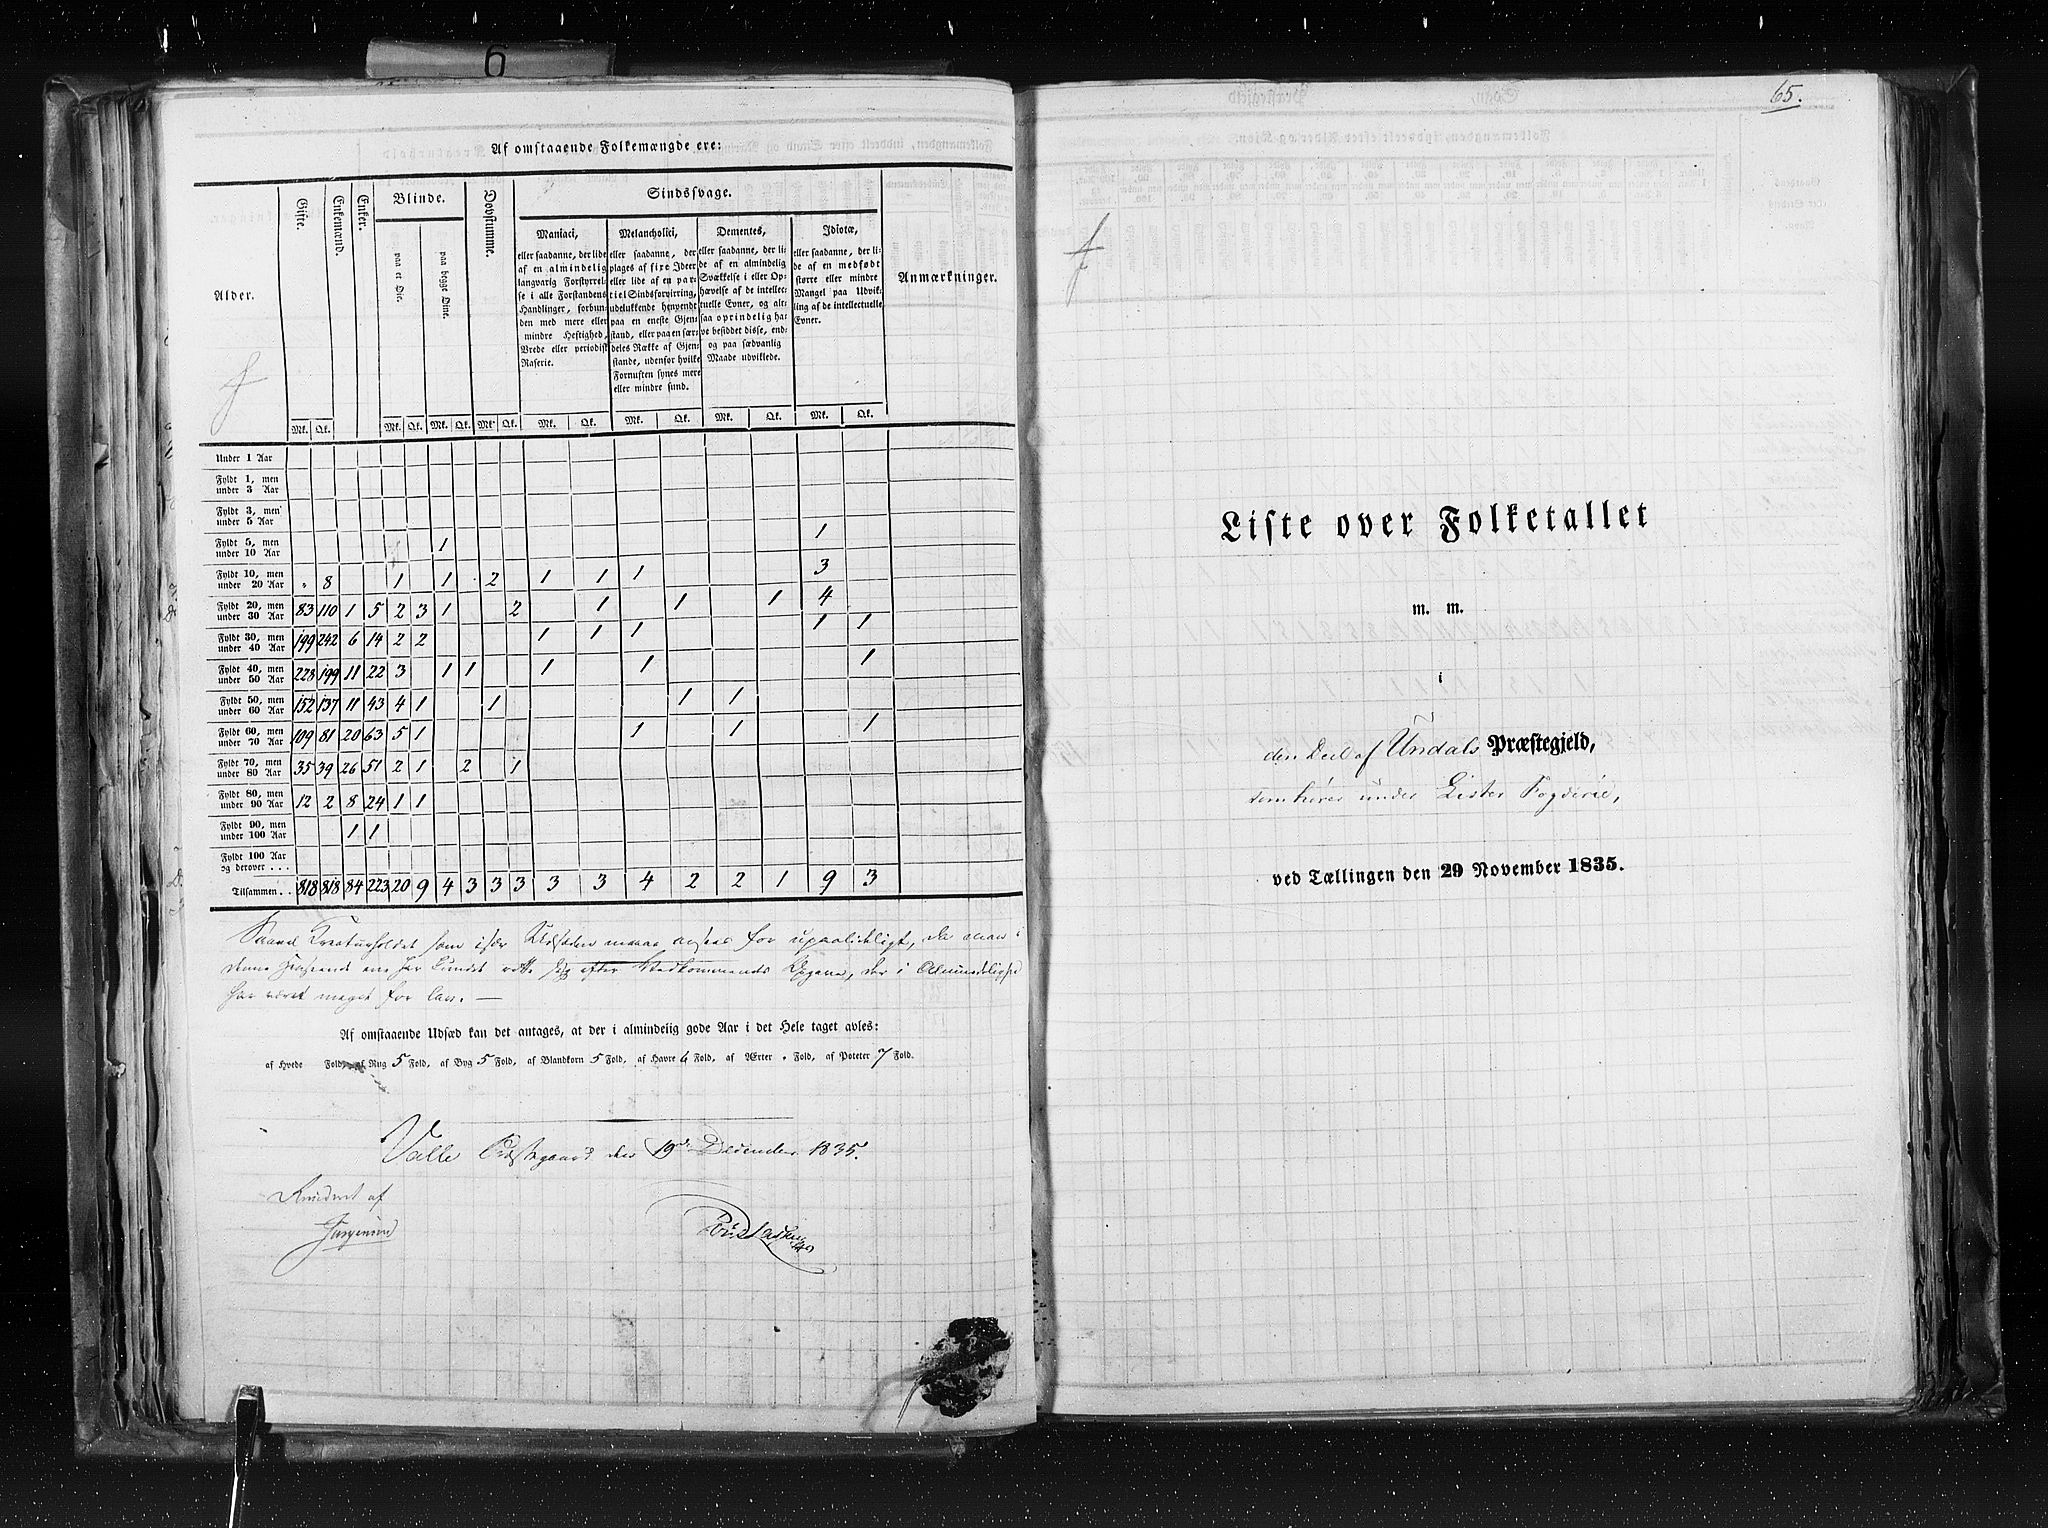 6
Af omstaaende Folkemængde ere:
Alder.
Gifte.
Enkemænd.
Enker.
Blinde.
paa et Øie.
paa begge Øine.
Døvstumme.
Sindssvage.
Maniaci,
eller saadanne, der lide
af en almindelig
langvarig Forstyrrel-
se i alle Forstandens
Handlinger, forbun-
den med mere eller
mindre Heftighed,
Vrede eller periodisk
Raserie.
Melancholici,
eller saadanne, der
plages af fixe Ideer
eller lide af en par-
tiel Sindsforvirring,
udelukkende henvendt
paa en eneste Gjen-
stand, eller paa en sær-
deles Række af Gjen-
stande, udenfor hvilke
Fornuften synes mere
eller mindre sund.
Dementes,
eller saadanne, der li-
de af en almindelig
Svækkelse i eller Op-
hævelse af de intellec-
tuelle Evner, og alt-
saa oprindelig ha-
ve besiddet disse, end-
og paa sædvanlig
Maade udviklede.
Idiotæ,
eller saadanne, der li-
de af en medfødt
større eller mindre
Mangel paa Udvik-
ling af de intellectuelle
Evner.
Anmærkninger.
Mk. Qk. Mk. Qk. Mk. Qk. Mk. Qk. Mk. Qk. Mk. Qk. Mk. Qk. Mk. Qk.
Under 1 Aar
Fyldt 1, men
under 3 Aar
Fyldt 3, men
under 5 Aar
Fyldt 5, men
under 10 Aar 1 1
Fyldt 10, men
under 20 Aar " 8 1 1 2 1 1 1 3
Fyldt 20, men
under 30 Aar 83 110 1 5 2 3 1 2 1 1 1 4
Fyldt 30, men
under 40 Aar 199 242 6 14 2 2 1 1 1 1 1
Fyldt 40, men
under 50 Aar 228 199 11 22 3 1 1 1 1 1
Fyldt 50, men
under 60 Aar 152 137 11 43 4 1 1 1 1
Fyldt 60, men
under 70 Aar 109 81 20 63 5 1 1 1 1
Fyldt 70, men
under 80 Aar 35 39 26 51 2 1 2 1
Fyldt 80, men
under 90 Aar 12 2 8 24 1 1
Fyldt 90, men
under 100 Aar 1 1
Fyldt 100 Aar
og derover . . .
Tilsammen . . 818 818 84 223 20 9 4 3 3 3 3 3 4 2 2 1 9 3
Saavel Kreaturholdet som især Udsæden maae ansees for upaalideligt, da man i
denne Henseende
har været meget for lav. —
Af omstaaende Udsæd kan det antages, at der i almindelig gode Aar i det Hele taget avles:
af Hvede Fold, af Rug 5 Fold, af Byg 5 Fold, af Blandkorn 5 Fold, af Havre 6 Fold, af Ærter . Fold, af Poteter 7 Fold.
Valle Præstegaard den 19de December 1835.
Revideret af
Jørgensen
65.
Liste over Folketallet
m. m.
i
den Deel af Undals Præstegjeld,
som hører under Lister Fogderie,
ved Tællingen den 29 November 1835.